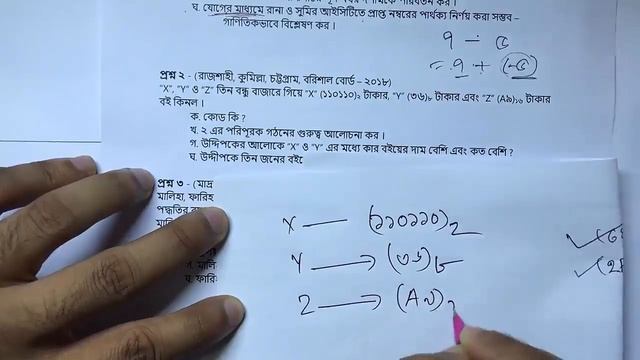 ঘ. যোগের মাধ্যমে রানা ও সুমির আইসিটিতে প্রাপ্ত নম্বরের পার্থক্য নির্ণয় করা সম্ভব -
গাণিতিকভাবে বিশ্লেষণ কর ।
৭ - ৫
= ৭ + (-৫)
প্রশ্ন ২ - (রাজশাহী, কুমিল্লা, চট্টগ্রাম, বরিশাল বোর্ড - ২০১৮)
"X", "Y" ও "Z" তিন বন্ধু বাজারে গিয়ে "X" (১১০১১০)₂ টাকার, "Y" (৩৬)₈ টাকার এবং "Z" (A৯)₁₆ টাকার
বই কিনল ।
ক. কোড কি ?
খ. ২ এর পরিপূরক গঠনের গুরুত্ব আলোচনা কর ।
গ. উদ্দীপকের আলোকে "X" ও "Y" এর মধ্যে কার বইয়ের দাম বেশি এবং কত বেশি ?
ঘ. উদ্দীপকে তিন জনের বইয়ে
প্রশ্ন ৩ - (মাদ্র
মালিহা, ফারিহ
পদ্ধতির
গ. মালি
ঘ. ফারি
X — (১১০১১০)₂
Y → (৩৬)৮
Z → (A৯)